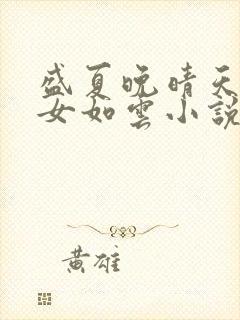 盛夏晚晴天
女如雲小說
黃雄